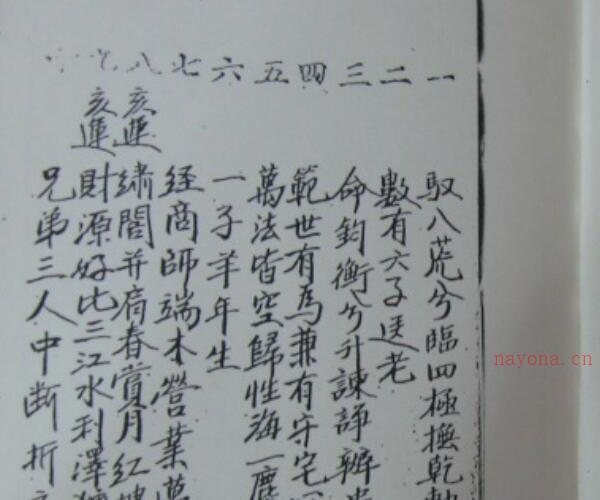 一 二 三 四 五 六 七 八
馭八荒兮臨四極撫乾
數有六子送老
命鈞衡兮升諫諍辨
範世有為兼有守宅
萬法皆空歸性海一塵
一子羊年生
經商師端木營業萬
亥運
繡閣并肩春賞月紅
亥運
財源好比三江水利澤
兄弟三人中斷折
nayona.cn